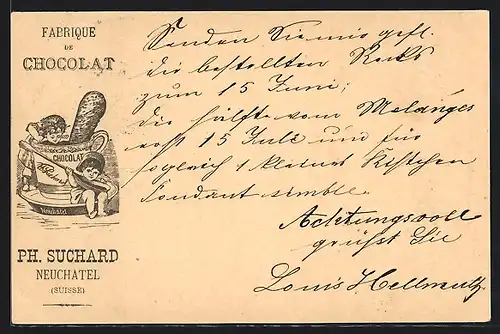 FABRIQUE
DE
CHOCOLAT
CHOCOLAT
Neuchâtel
PH. SUCHARD
NEUCHATEL
(SUISSE)
Senden Sie mir gefl.
die bestellten Rocks
zum 15 Juni;
die Hälfte vom Melanges
erst 15 Juli und für
sogleich 1 kleines Kistchen
Fondant
Achtungsvoll
grüßt Sie
Louis Hellmuth